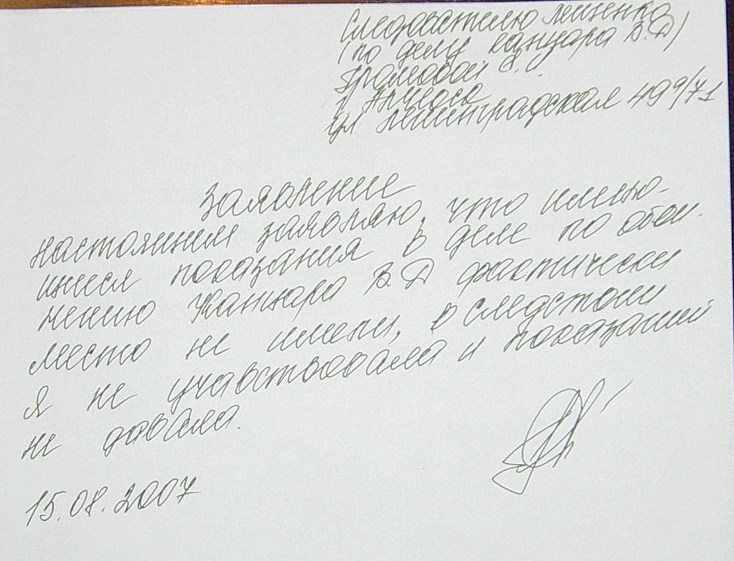 Следователю Мизенко
(по делу Канцара В.Д)
Грамовой
ул Ленинградская 499/71
Заявление
настоящим заявляю, что имею-
щиеся показания в деле по обви-
нению Канцара В.Д фактически
место не имели, в следствии
я не учавствовала и показаний
не давала.
15.08.2007